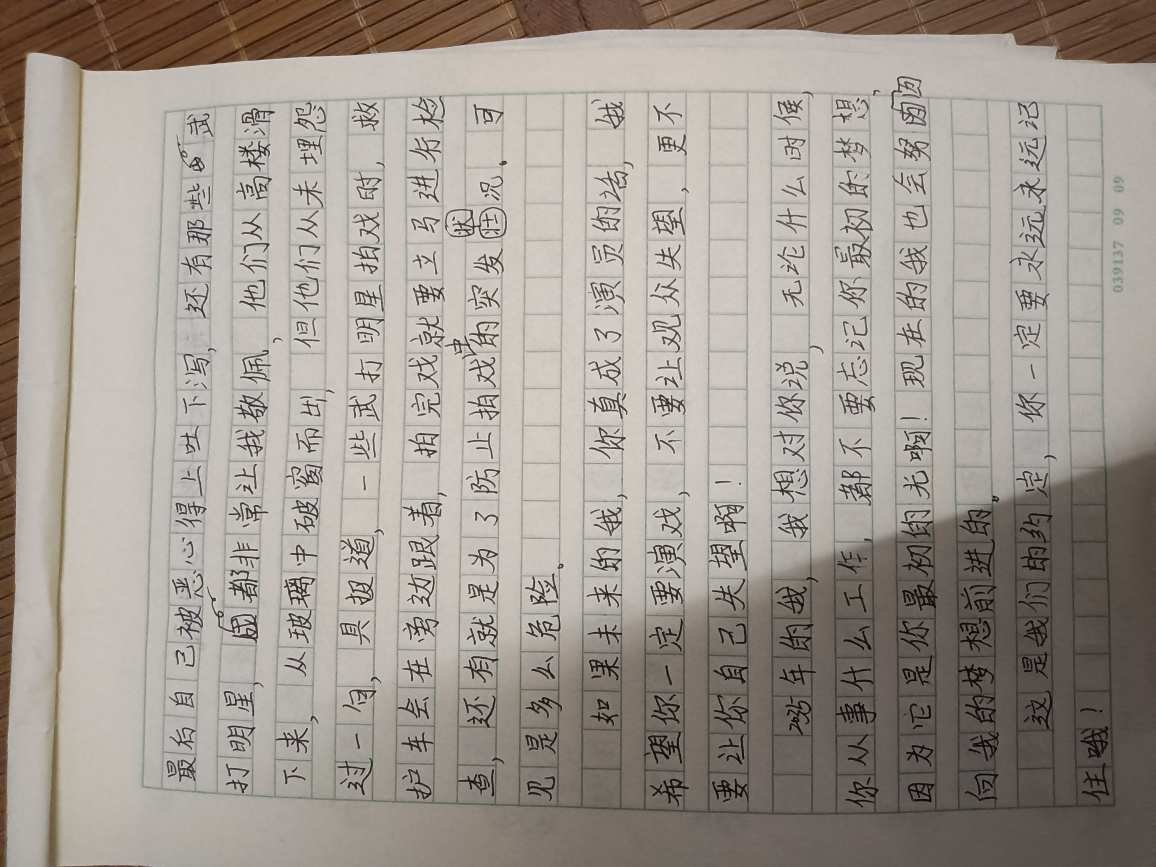 最后自己被恶心得上吐下泻，还有那些武
打明星，都非常让我敬佩，他们从高楼滑
下来，从玻璃中破窗而出，但他们从未埋怨
过一句，具报道，一些武打明星拍戏时，救
护车会在旁边跟着，拍完戏就要立马进行检
查，还有就是为了防止拍戏中的突发状况。可
见是多么危险。
如果未来的我，你真成了演员的话，我
希望你一定要演戏，不要让观众失望，更不
要让你自己失望啊！
2035年的我，我想对你说，无论什么时候，
你从事什么工作，都不要忘记你最初的梦想，
因为它是你最初的光啊！现在的我也会努力
向我的梦想前进的。
这是我们的约定，你一定要永远永远记
住哦！
039137 09 09